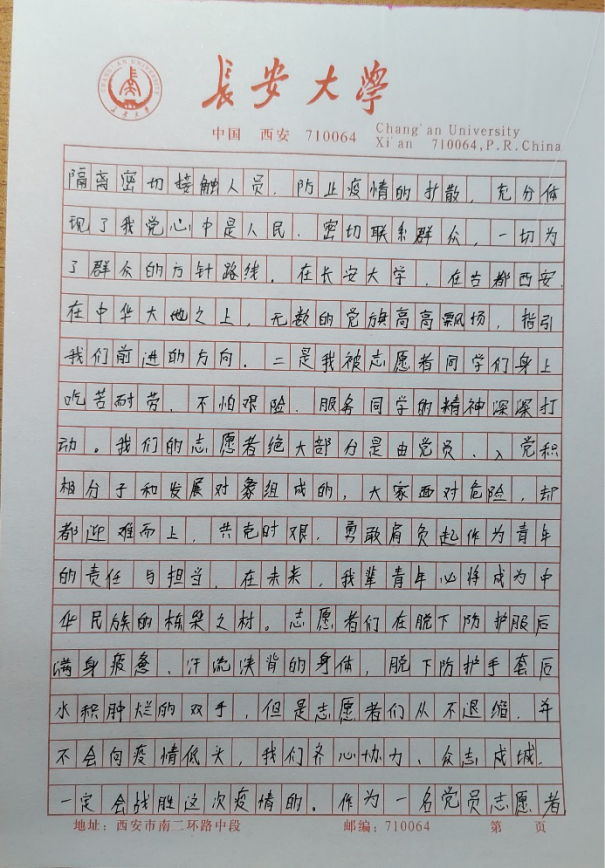 长安大学
中国 西安 710064
Chang'an University
Xi'an 710064,P.R.China
隔离密切接触人员、防止疫情的扩散，充分体
现了我党心中是人民、密切联系群众，一切为
了群众的方针路线。在长安大学、在古都西安、
在中华大地之上，无数的党旗高高飘扬，指引
我们前进的方向。二是我被志愿者同学们身上
吃苦耐劳、不怕艰险、服务同学的精神深深打
动。我们的志愿者绝大部分是由党员、入党积
相分子和发展对象组成的，大家面对危险，却
都迎难而上，共克时艰，勇敢肩负起作为青年
的责任与担当。在未来，我辈青年必将成为中
华民族的栋梁之材。志愿者们在脱下防护服后
满身疲惫、汗流浃背的身体，脱下防护手套后
水积肿烂的双手，但是志愿者们从不退缩，并
不会向疫情低头，我们齐心协力、众志成城，
一定会战胜这次疫情的。作为一名党员志愿者
地址：西安市南二环路中段 邮编：710064 第 页